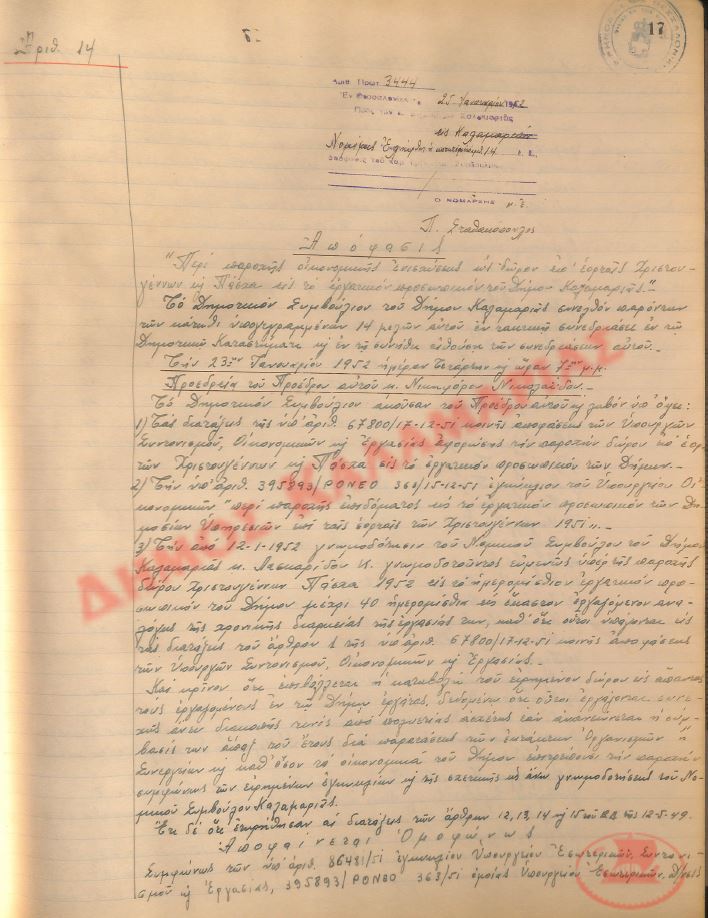 17
Ἀριθ. 14
Ἀριθ. Πρωτ. 3444
Ἐν Θεσσαλονίκῃ τῇ 25 Ἰανουαρίου 1952
Πρὸς τὸν κ. Δήμαρχον Καλαμαριᾶς
εἰς Καλαμαριάν
Νομίμως ἐλήφθη ἡ 14
Ο ΝΟΜΑΡΧΗΣ κ.ἐ.
Π. Σταθακόπουλος
Ἀπόφασις
"Περὶ παροχῆς οἰκονομικῆς ἐνισχύσεως ὡς δῶρον ἐπὶ ἑορταῖς Χριστου-
γέννων κ Πάσχα εἰς τὸ ἐργατικὸν προσωπικὸν τοῦ Δήμου Καλαμαριᾶς."
Τὸ Δημοτικὸν Συμβούλιον τοῦ Δήμου Καλαμαριᾶς συνελθὸν παρόντων
τῶν κάτωθι ὑπογεγραμμένων 14 μελῶν αὐτοῦ ἐν τακτικῇ συνεδριάσει ἐν τῷ
Δημοτικῷ Καταστήματι κ ἐν τῇ συνήθει αἰθούσῃ τῶν συνεδριάσεων αὐτοῦ.
Τὴν 23ην Ἰανουαρίου 1952 ἡμέραν Τετάρτην κ ὥραν 7ην μ.μ.
Προεδρείᾳ τοῦ Προέδρου αὐτοῦ κ. Νικηφόρου Νικολαΐδου.
Τὸ Δημοτικὸν Συμβούλιον ἀκοῦσαν τοῦ Προέδρου αὐτοῦ κ λαβὸν ὑπ' ὄψει:
1) Τὰς διατάξεις τῆς ὑπ' ἀριθ. 67800/17-12-51 κοινῆς ἀποφάσεως τῶν Ὑπουργῶν
Συντονισμοῦ, Οἰκονομικῶν κ Ἐργασίας ἀφορώσης τὴν παροχὴν δώρου
τῶν Χριστουγέννων κ Πάσχα εἰς τὸ ἐργατικὸν προσωπικὸν τῶν Δήμων.
2) Τὴν ὑπ' ἀριθ. 395893/ΡΟΝΕΟ 363/15-12-51 ἐγκύκλιον τοῦ Ὑπουργείου Οἰ-
κονομικῶν "περὶ παροχῆς ἐπιδόματος εἰς τὸ ἐργατικὸν προσωπικὸν τῶν Δη-
μοσίων Ὑπηρεσιῶν ἐπὶ ταῖς ἑορταῖς τῶν Χριστουγέννων 1951".
3) Τὴν ἀπὸ 12-1-1952 γνωμοδότησιν τοῦ Νομικοῦ Συμβούλου τοῦ Δήμου
Καλαμαριᾶς κ. Λασκαρίδου Κ. γνωμοδοτοῦντος εὐμενῶς ὑπὲρ τῆς παροχῆς
δώρου Χριστουγέννων Πάσχα 1952 εἰς τὸ ἡμερομίσθιον ἐργατικὸν προσ-
ωπικὸν τοῦ Δήμου μέχρι 40 ἡμερομίσθια εἰς ἕκαστον ἐργαζόμενον ἀνα-
λόγως τῆς χρονικῆς διαρκείας τῆς ἐργασίας των, καθ' ὅτι οὗτοι ὑπάγονται εἰς
τὰς διατάξεις τοῦ ἄρθρου 1 τῆς ὑπ' ἀριθ. 67800/17-12-51 κοινῆς ἀποφάσεως
τῶν Ὑπουργῶν Συντονισμοῦ, Οἰκονομικῶν κ Ἐργασίας.
Καὶ κρῖνον ὅτι ἐπιβάλλεται ἡ καταβολὴ τοῦ εἰρημένου δώρου εἰς ἅπαντας
τοὺς ἐργαζομένους ἐν τῷ Δήμῳ ἐργάτας, δεδομένου ὅτι οὗτοι ἐργάζονται συνε-
χῶς ἄνευ διακοπῆς τινὸς ἀπὸ πολυετίας ἀσχέτως ἐὰν ἀνανεώνεται ἡ σύμ-
βασίς των ἅπαξ τοῦ ἔτους διὰ παρατάσεως τῶν ἐκτάκτων Ὀργανισμῶν ἢ
Συνεργείων κ καθ' ὅσον τὰ οἰκονομικὰ τοῦ Δήμου ἐπιτρέπουν τὴν παροχὴν
συμφώνως τῶν εἰρημένων ἐγκυκλίων κ τῆς σχετικῆς ὡς ἄνω γνωμοδοτήσεως τοῦ Νο-
μικοῦ Συμβούλου Καλαμαριᾶς.
Ἔτι δὲ ὅτι ἐτηρήθησαν αἱ διατάξεις τῶν ἄρθρων 12, 13, 14 κ 15 τοῦ Β.Δ. τῆς 12-5-49.
Ἀποφαίνεται Ὁμοφώνως
Συμφώνως τῶν ὑπ' ἀριθ. 86481/51 ἐγκυκλίου Ὑπουργείου Ἐσωτερικῶν, Συντονι-
σμοῦ κ Ἐργασίας, 395893/ΡΟΝΕΟ 363/51 ὁμοίας Ὑπουργείου